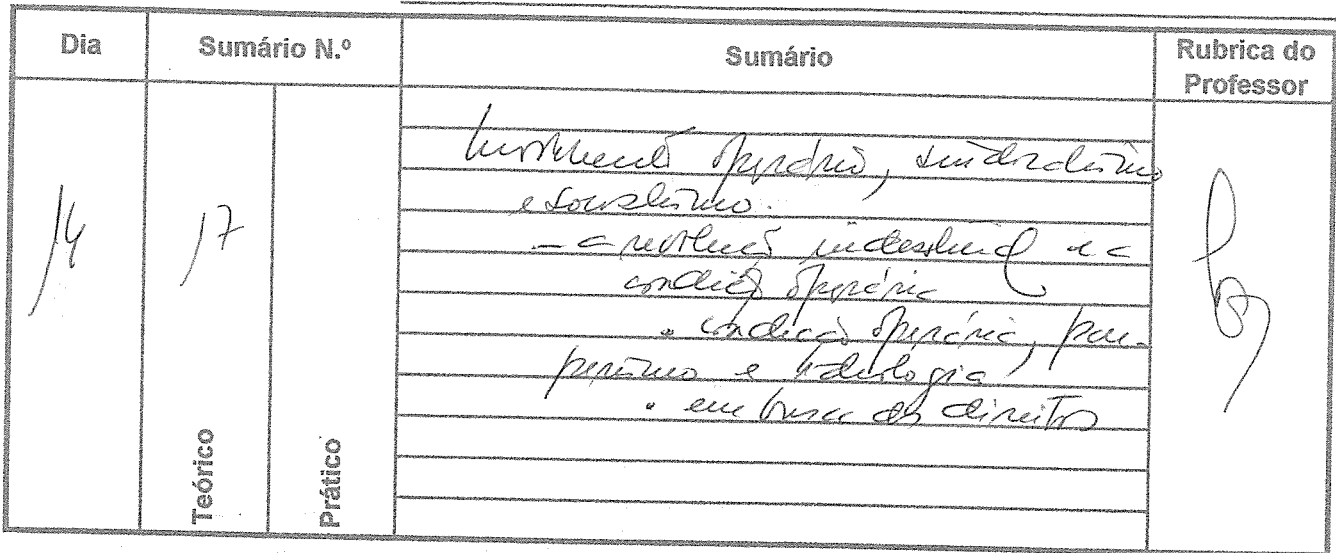 Dia
Sumário N.º
Sumário
Rubrica do
Professor
14
17
Teórico
Prático
Movimento operário, sindicalismo
e socialismo.
– a revolução industrial e a
condição operária
• condição operária, pau-
perismo e ideologia
• em busca dos direitos